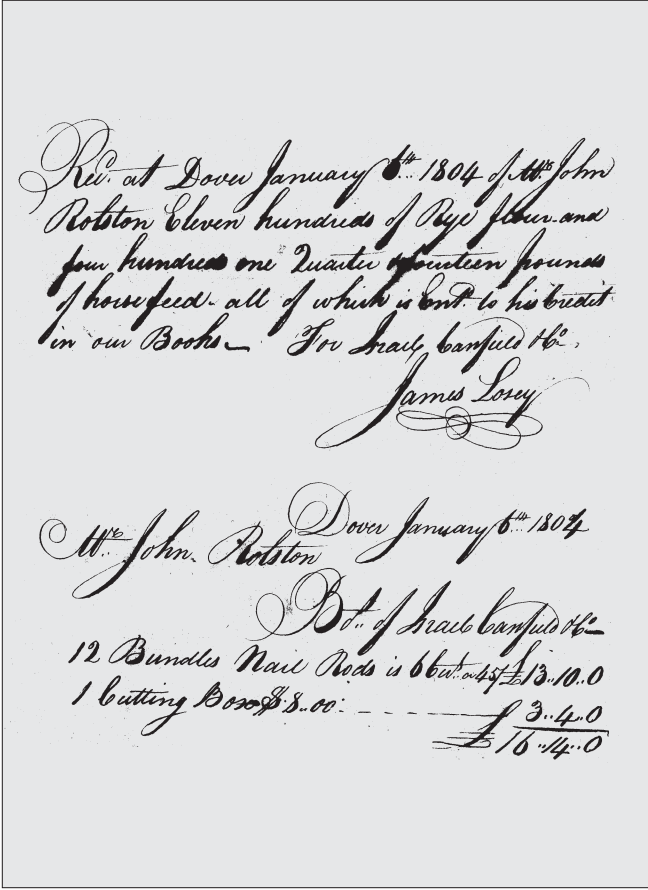 Rec'd. at Dover January 6th.. 1804 of Mr. John
Rolston Eleven hundreds of Rye flour and
four hundred one Quarter & fourteen pounds
of horse feed - all of which is Ent. to his Credit
in our Books— For Israel Canfield & Co.
James Losey
Dover January 6th.. 1804
Mr. John Rolston
Bot.. of Israel Canfield & Co—
12 Bundles Nail Rods is 6 Cwt. a 45/ £13..10..0
1 Cutting Box $8..00 £ 3..4..0
£ 16..14..0